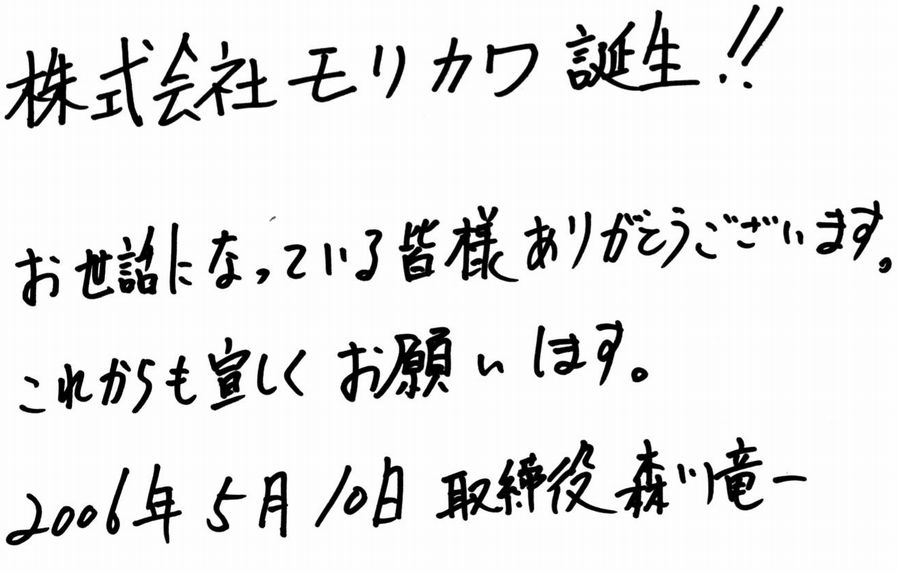 株式会社モリカワ 誕生!!
お世話になっている皆様ありがとうございます。
これからも宜しくお願いします。
2006年5月10日 取締役 森川竜一